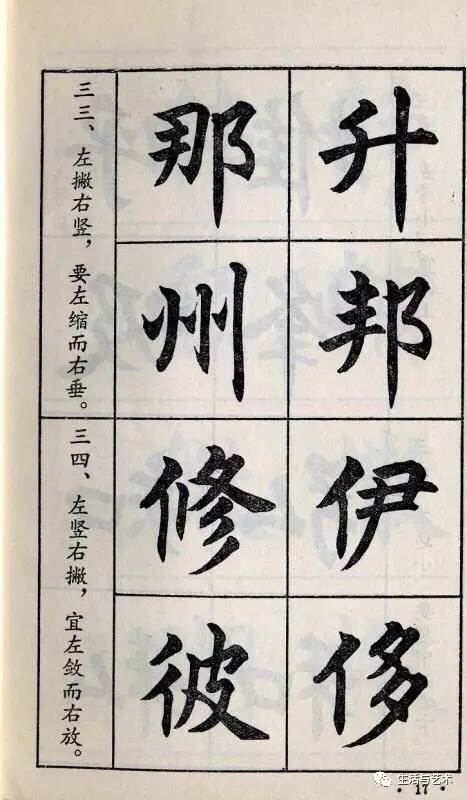 升
邦
那
州
三三、左撇右竖，要左缩而右垂。
伊
侈
修
彼
三四、左竖右撇，宜左敛而右放。
·17·
生活与艺术